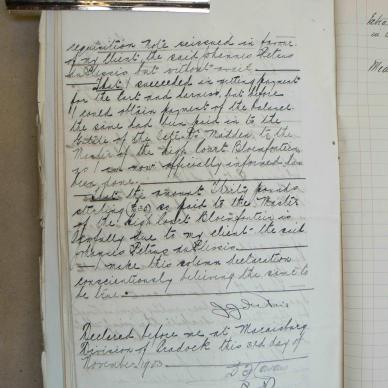 requisition note reissued in favour
of my client, the said Johannes Petrus
du Plessis but without avail.
That I succeeded in getting payment
for the cart and harness, but before
I could obtain payment of the balance
the same had been paid in to the
Estate of the Madden, to the
Master of the High Court Bloemfontein
as I am now officially informed has
been done.
That the amount Thirty pounds
sterling (£30) so paid to the Master
of the High Court Bloemfontein is
lawfully due to my client the said
Johannes Petrus du Plessis.
I make this solemn declaration
conscientiously believing the same to
be true.
Declared before me at Maraisburg
Division of Cradock this 3rd day of
November 1903